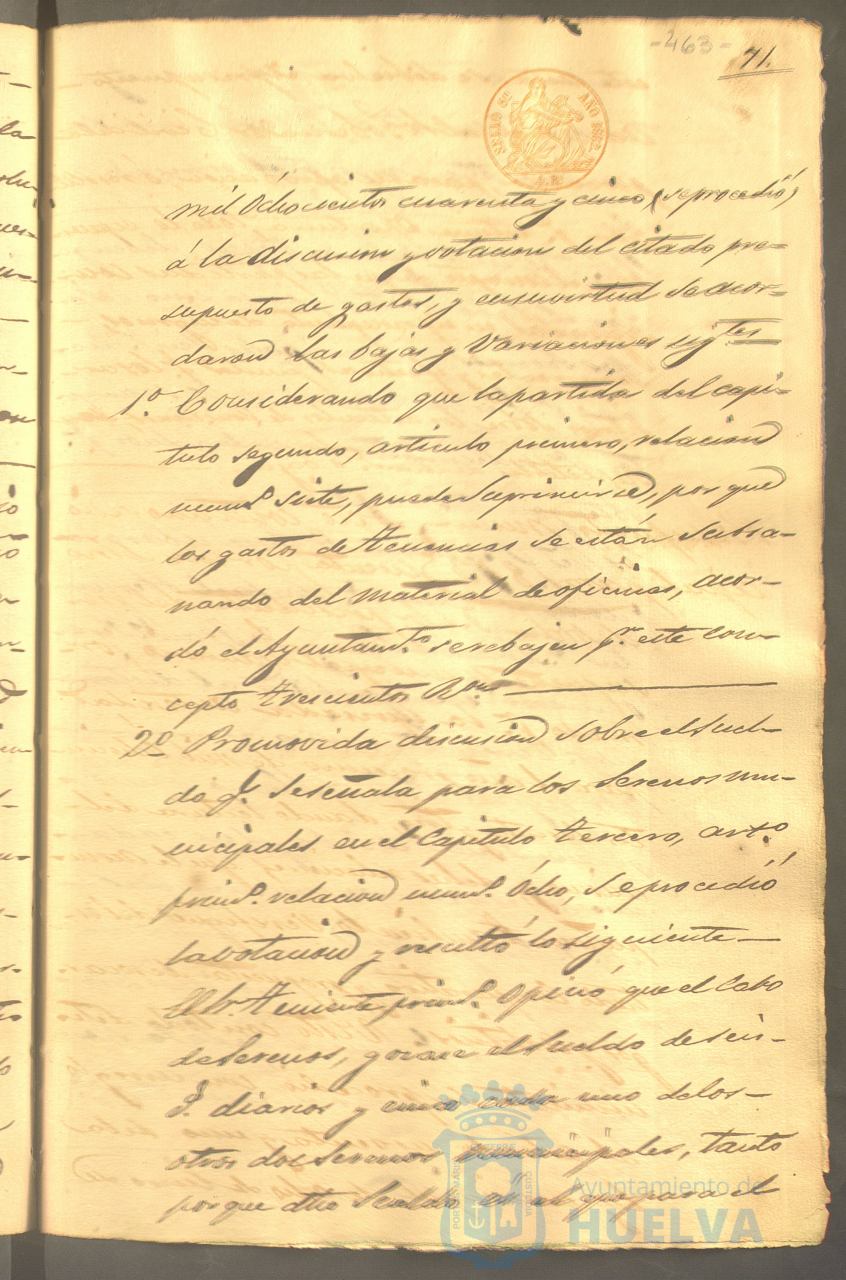 -463-
71.
SELLO 8º AÑO 1862.
mil Ochocientos cuarenta y cinco, (se procedió)
á la discusion y votacion del citado pre=
supuesto de gastos, y en su virtud se acor-
daron las bajas y Variaciones sigtes
1º. Considerando que la partida del capi-
tulo segundo, articulo primero, relacion
numº. siete, puede suprimirse, por que
los gastos de tenencias se están subsa-
nando del material de oficinas, acor-
dó el Ayuntamto. se rebajen pr. este con-
cepto trescientos Rs
2º Promovida discusion sobre el suel-
do q. se señala para los Serenos mu-
nicipales en el Capitulo tercero, artº.
primº. relacion numº. Ocho, se procedió
la votacion y resultó lo siguiente—
El Sr. Teniente primº. Opinó que el Cabo
de Serenos, gozace el sueldo de seis-
diarios y cinco cada uno de los-
otros dos serenos municipales, tanto
porque dho sueldo es el que para el
PORTUS MARIS ET TERRE CUSTODIA
Ayuntamiento de
HUELVA